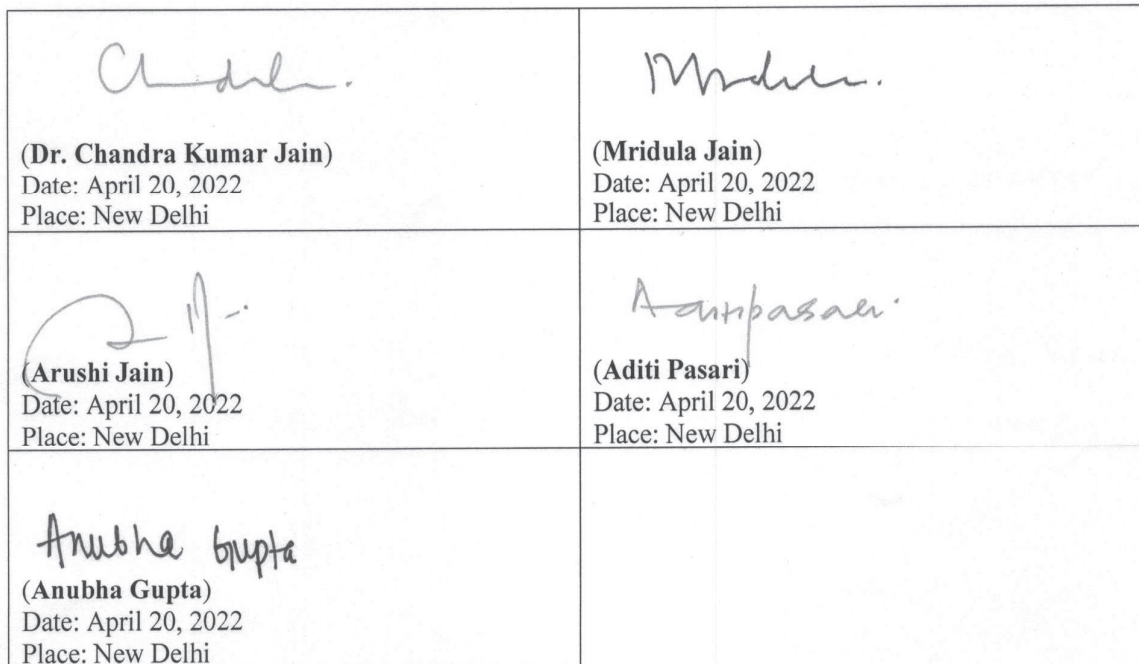 Chandra.
(Dr. Chandra Kumar Jain)
Date: April 20, 2022
Place: New Delhi
Mridula.
(Mridula Jain)
Date: April 20, 2022
Place: New Delhi
(Arushi Jain)
Date: April 20, 2022
Place: New Delhi
Aditipasari
(Aditi Pasari)
Date: April 20, 2022
Place: New Delhi
Anubha Gupta
(Anubha Gupta)
Date: April 20, 2022
Place: New Delhi